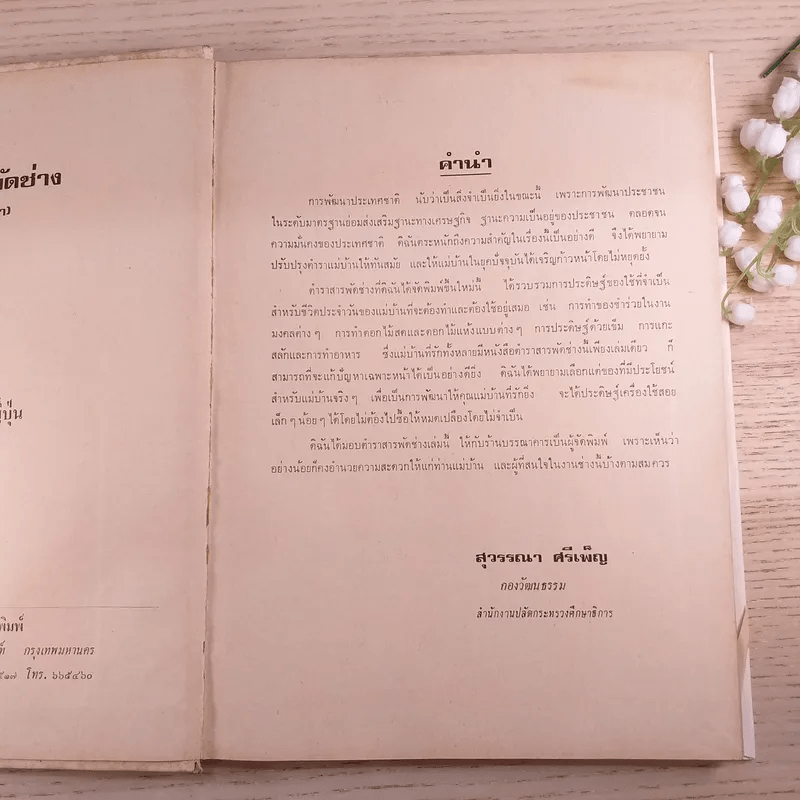 พัดช่าง
ญี่ปุ่น
พิมพ์
กรุงเทพมหานคร
โทร. ๖๖๕๔๖๐
คำนำ
การพัฒนาประเทศชาติ นับว่าเป็นสิ่งจำเป็นยิ่งในขณะนี้ เพราะการพัฒนาประชาชน
ในระดับมาตรฐานย่อมส่งเสริมฐานะทางเศรษฐกิจ ฐานะความเป็นอยู่ของประชาชน ตลอดจน
ความมั่นคงของประเทศชาติ ดิฉันตระหนักถึงความสำคัญในเรื่องนี้เป็นอย่างดี จึงได้พยายาม
ปรับปรุงตำราแม่บ้านให้ทันสมัย และให้แม่บ้านในยุคปัจจุบันได้เจริญก้าวหน้าโดยไม่หยุดยั้ง
ตำราสารพัดช่างที่ดิฉันได้จัดพิมพ์ขึ้นใหม่นี้ ได้รวบรวมการประดิษฐ์ของใช้ที่จำเป็น
สำหรับชีวิตประจำวันของแม่บ้านที่จะต้องทำและต้องใช้อยู่เสมอ เช่น การทำของชำร่วยในงาน
มงคลต่าง ๆ การทำดอกไม้สดและดอกไม้แห้งแบบต่าง ๆ การประดิษฐ์ด้วยเข็ม การแกะ
สลักและการทำอาหาร ซึ่งแม่บ้านที่รักทั้งหลายมีหนังสือตำราสารพัดช่างนี้เพียงเล่มเดียว ก็
สามารถที่จะแก้ปัญหาเฉพาะหน้าได้เป็นอย่างดียิ่ง ดิฉันได้พยายามเลือกแต่ของที่มีประโยชน์
สำหรับแม่บ้านจริง ๆ เพื่อเป็นการพัฒนาให้คุณแม่บ้านที่รักยิ่ง จะได้ประดิษฐ์เครื่องใช้สอย
เล็ก ๆ น้อย ๆ ได้โดยไม่ต้องไปซื้อให้หมดเปลืองโดยไม่จำเป็น
ดิฉันได้มอบตำราสารพัดช่างเล่มนี้ ให้กับร้านบรรณาคารเป็นผู้จัดพิมพ์ เพราะเห็นว่า
อย่างน้อยก็คงอำนวยความสะดวกให้แก่ท่านแม่บ้าน และผู้ที่สนใจในงานช่างนี้บ้างตามสมควร
สุวรรณา ศรีเพ็ญ
กองวัฒนธรรม
สำนักงานปลัดกระทรวงศึกษาธิการ